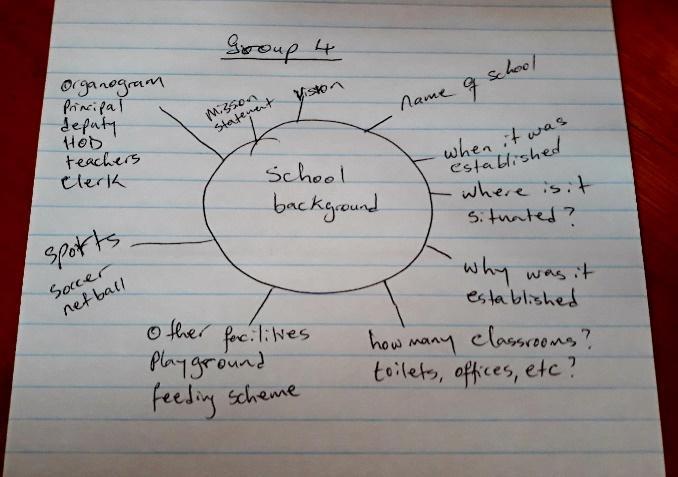 Group 4
Organogram
Principal
deputy
HOD
teachers
Clerk
Mission
statement
Vision
name of school
when it was
established
where is it
situated?
why was it
established
how many classrooms?
toilets, offices, etc?
Other facilities
Playground
feeding scheme
sports
soccer
netball
School
background